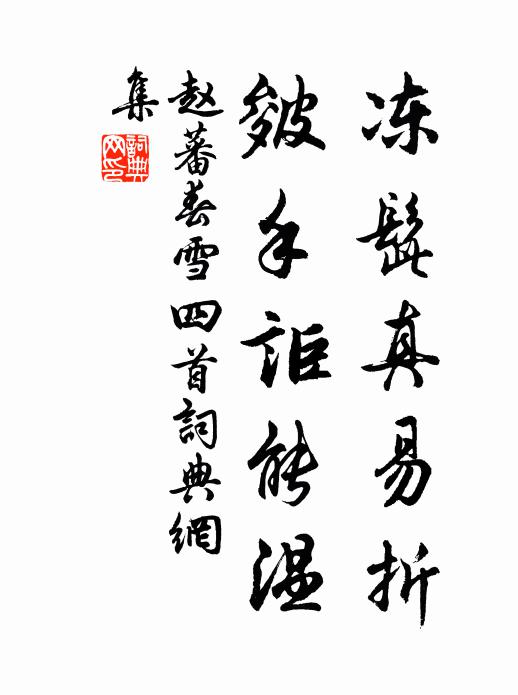 冻髭真易折
皴手讵能温
赵蕃春雪四首词典網
集
詞典
网印